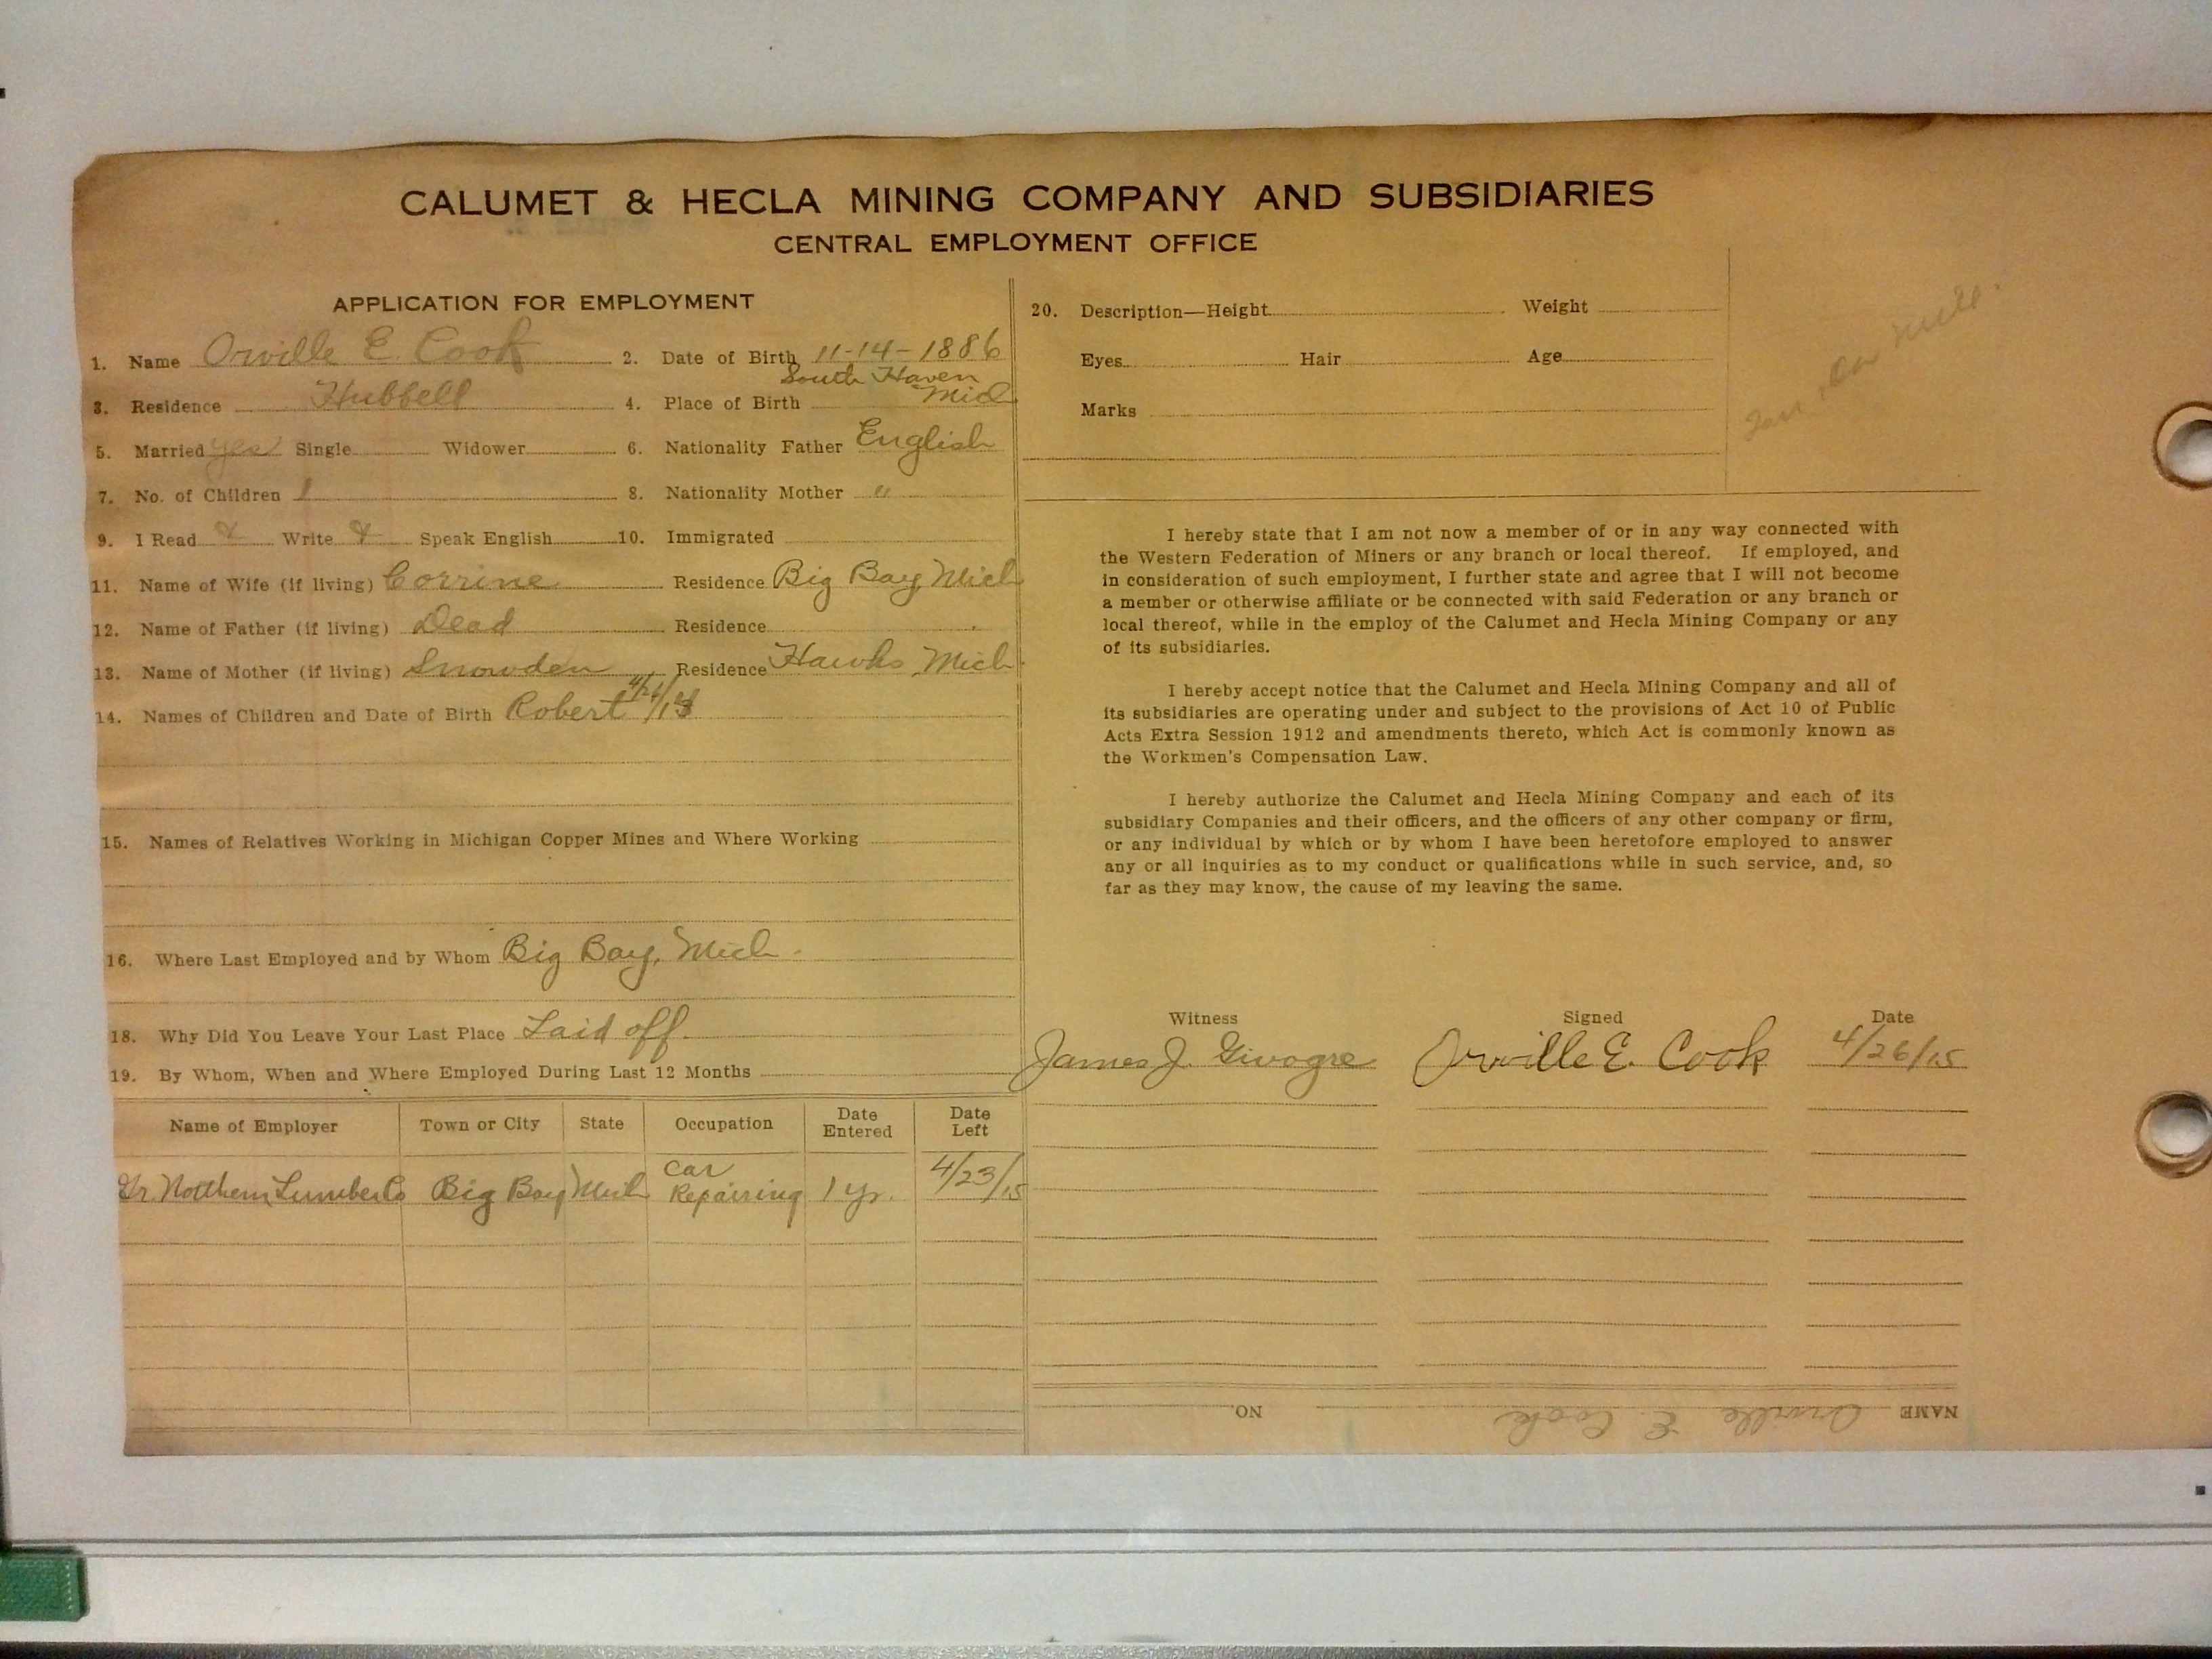 CALUMET & HECLA MINING COMPANY AND SUBSIDIARIES
CENTRAL EMPLOYMENT OFFICE
APPLICATION FOR EMPLOYMENT
1. Name Orville E. Cook 2. Date of Birth 11-14-1886
3. Residence Hubbell 4. Place of Birth South Haven Mich
5. Married yes Single Widower 6. Nationality Father English
7. No. of Children 1 8. Nationality Mother "
9. I Read Write Speak English 10. Immigrated
11. Name of Wife (if living) Corrine Residence Big Bay, Mich
12. Name of Father (if living) Dead Residence
13. Name of Mother (if living) Snowden Residence Hawks, Mich
14. Names of Children and Date of Birth Robert
15. Names of Relatives Working in Michigan Copper Mines and Where Working
16. Where Last Employed and by Whom Big Bay, Mich.
18. Why Did You Leave Your Last Place Laid off.
19. By Whom, When and Where Employed During Last 12 Months
Name of Employer Town or City State Occupation Date Entered Date Left
Gr. Northern Lumber Co Big Bay Mich Car Repairing 1 yr. 4/23/15
20. Description—Height Weight
Eyes Hair Age
Marks
Mill.
I hereby state that I am not now a member of or in any way connected with
the Western Federation of Miners or any branch or local thereof. If employed, and
in consideration of such employment, I further state and agree that I will not become
a member or otherwise affiliate or be connected with said Federation or any branch or
local thereof, while in the employ of the Calumet and Hecla Mining Company or any
of its subsidiaries.
I hereby accept notice that the Calumet and Hecla Mining Company and all of
its subsidiaries are operating under and subject to the provisions of Act 10 of Public
Acts Extra Session 1912 and amendments thereto, which Act is commonly known as
the Workmen's Compensation Law.
I hereby authorize the Calumet and Hecla Mining Company and each of its
subsidiary Companies and their officers, and the officers of any other company or firm,
or any individual by which or by whom I have been heretofore employed to answer
any or all inquiries as to my conduct or qualifications while in such service, and, so
far as they may know, the cause of my leaving the same.
Witness Signed Date
James J. Orville E. Cook 4/26/15
NAME Orville E. Cook NO.